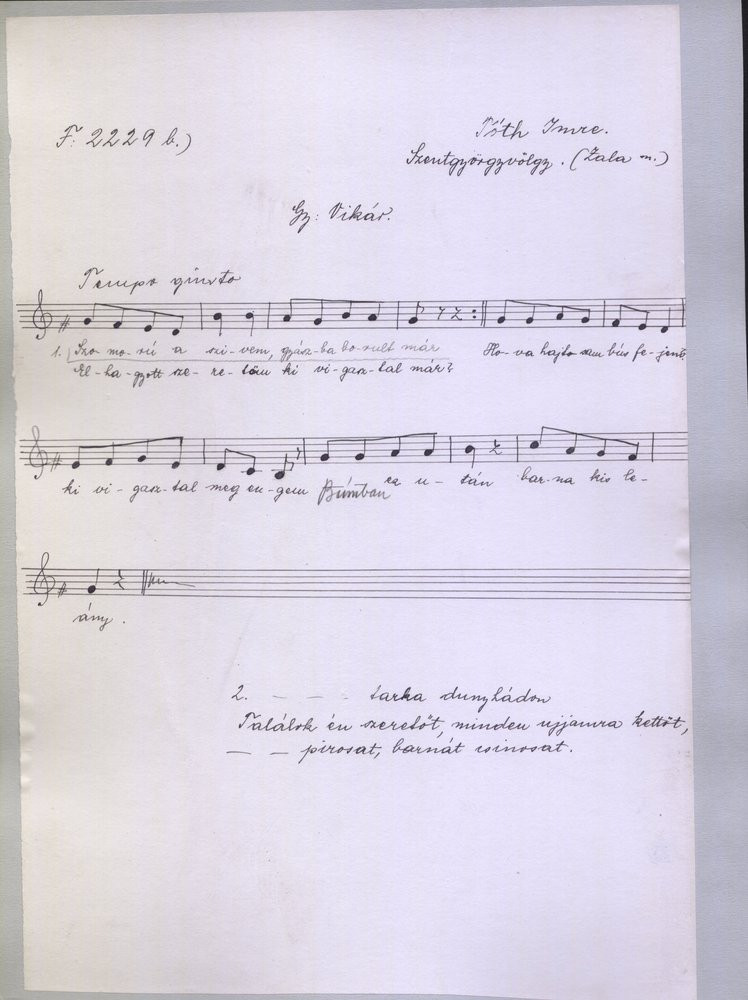 F: 2229 b.)
Tóth Imre.
Szentgyörgyvölgy. (Zala m.)
Gy: Vikár.
Tempo giusto
1. Szo-mo-rú a szi-vem, gyász-ba bo-rult már Ho-va hajto-sam bús fe-jem
El-ha-gyott sze-re-tőm ki vi-gasz-tal már?
ki vi-gasz-tal meg en-gem Búmban ez u-tán bar-na kis le-
ány.
2. — — - tarka dunyhádon
Találok én szeretőt, minden ujjamra kettőt,
— — pirosat, barnát csinosat.